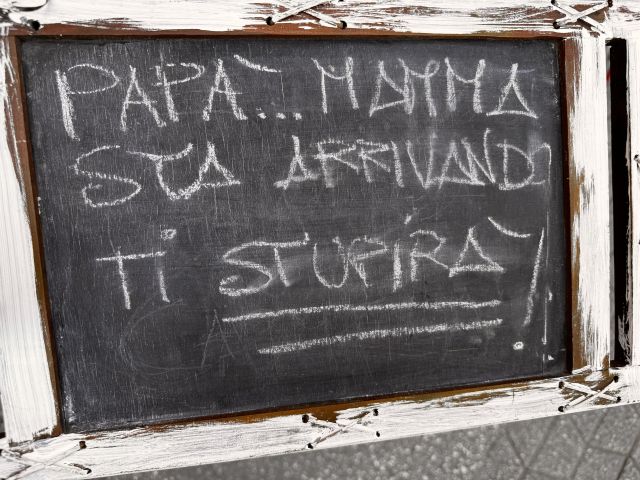 PAPÀ... MAMMA
STA ARRIVANDO
TI STUPIRÀ!
CA